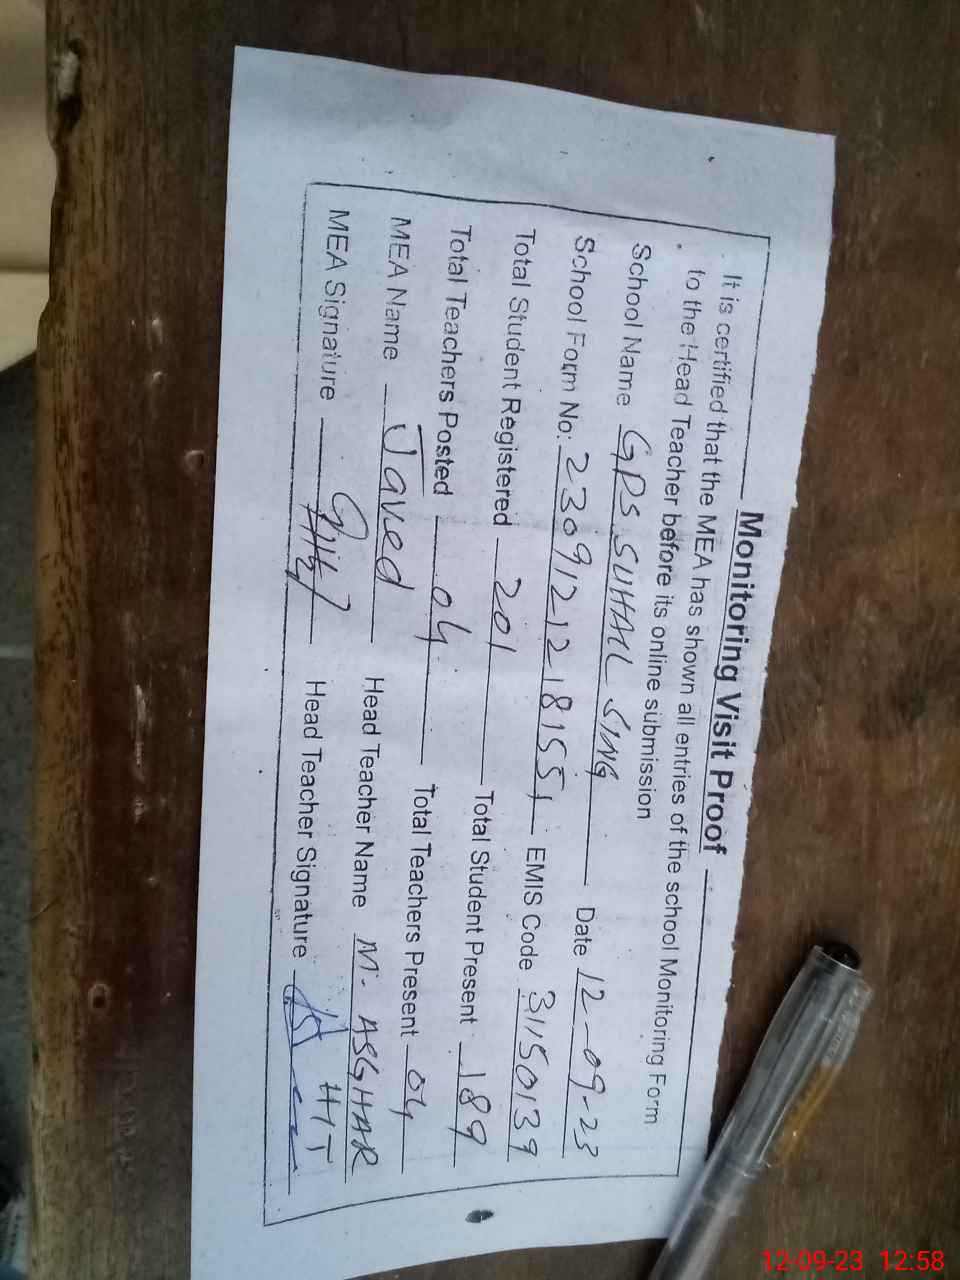 Monitoring Visit Proof
It is certified that the MEA has shown all entries of the school Monitoring Form
to the Head Teacher before its online submission
School Name GPS SUHAIL SING Date 12-09-23
School Form No: 23091212181551 EMIS Code 31150139
Total Student Registered 201 Total Student Present 189
Total Teachers Posted 04 Total Teachers Present 04
MEA Name Javed Head Teacher Name M. ASGHAR
MEA Signature Head Teacher Signature HT
12-09-23 12:58